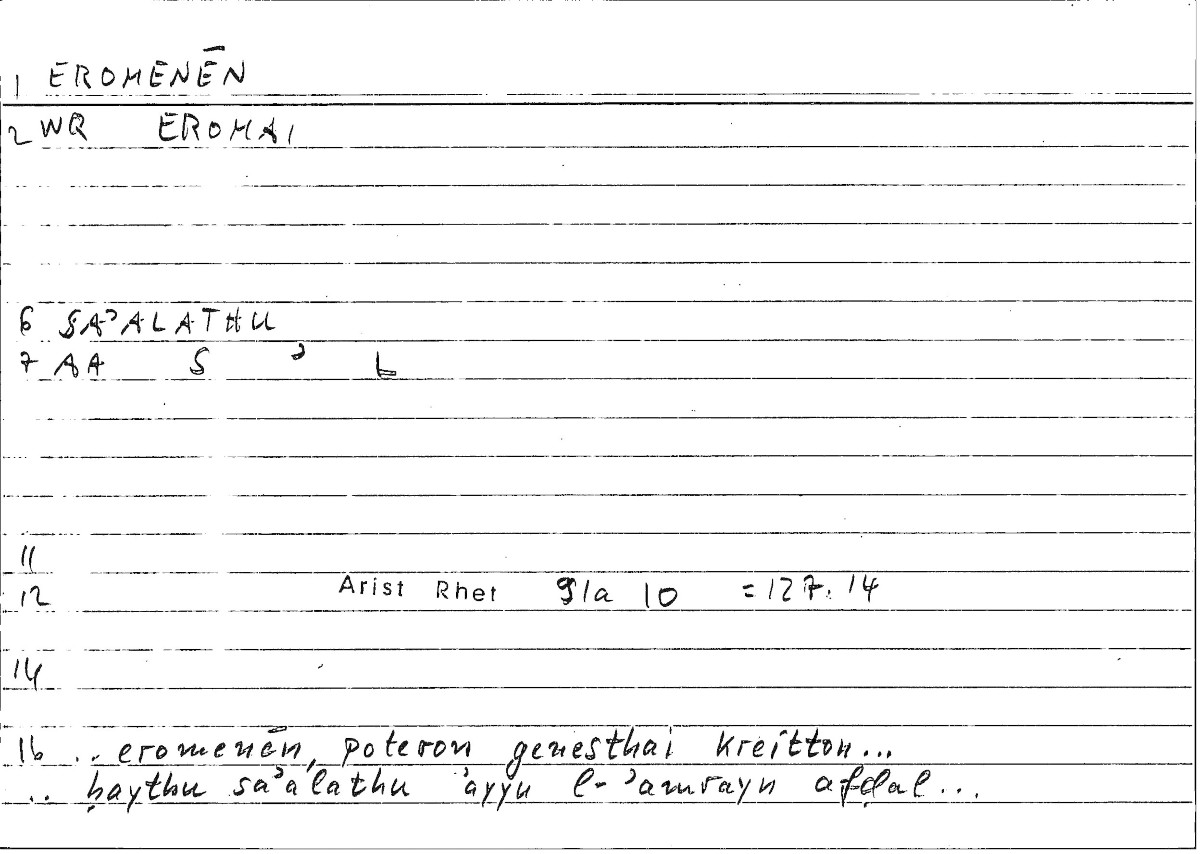 1 EROMENĒN
2 WQ EROMAI
6 SAʾALATHU
7 AA S ʾ L
11
12 Arist Rhet 91a 10 =127.14
14
16 .. eromenēn, poteron genesthai kreîtton...
.. ḥaythu saʾalathu ʾayyu l-ʾamrayn afḍal...